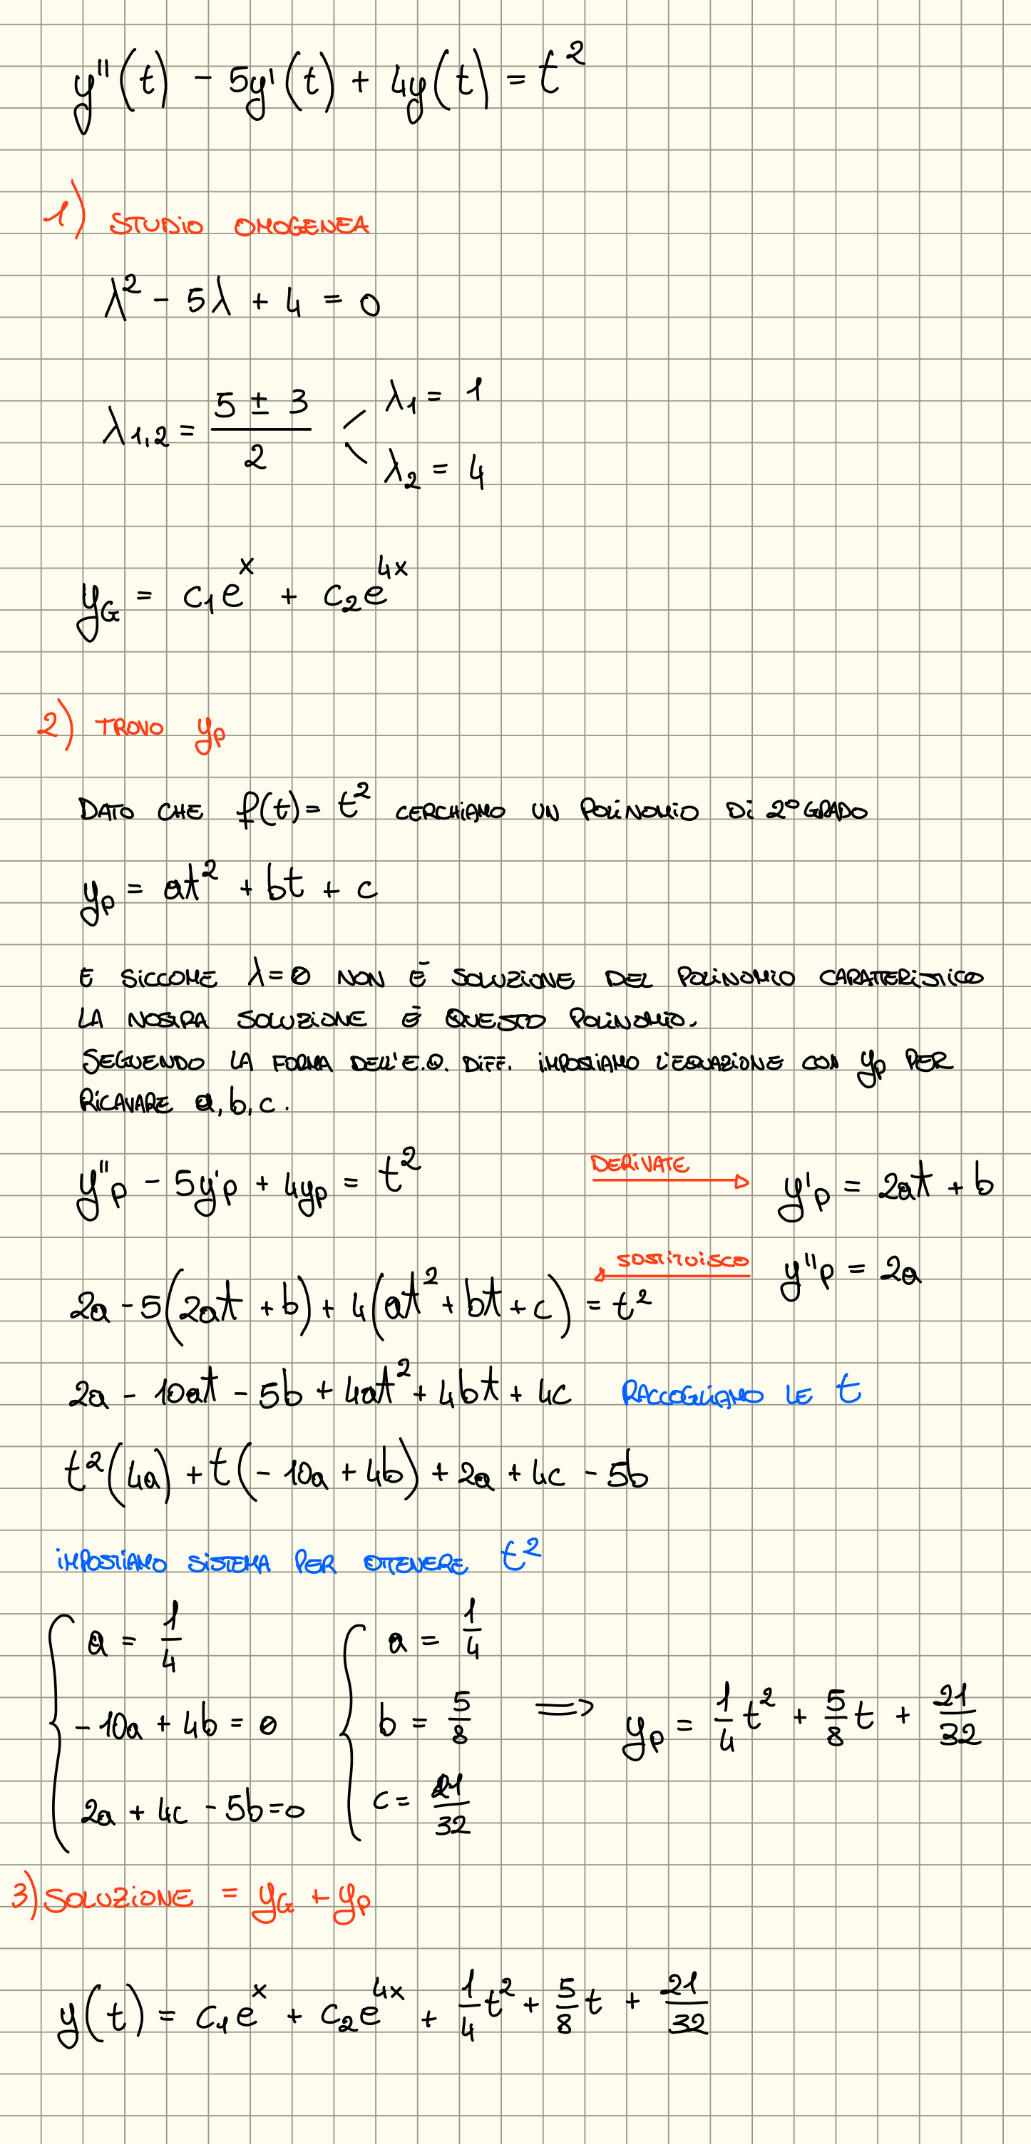 y''(t) - 5y'(t) + 4y(t) = t²
1) STUDIO OMOGENEA
λ² - 5λ + 4 = 0
λ1,2 = (5 ± 3)/2 < λ1 = 1
λ2 = 4
yG = c1e^x + c2e^4x
2) TROVO yp
DATO CHE f(t) = t² CERCHIAMO UN POLINOMIO DI 2° GRADO
yp = at² + bt + c
E SICCOME λ=0 NON È SOLUZIONE DEL POLINOMIO CARATTERISTICO
LA NOSTRA SOLUZIONE È QUESTO POLINOMIO.
SEGUENDO LA FORMA DELL'E.Q. DIFF. IMPOSTIAMO L'EQUAZIONE CON yp PER
RICAVARE a, b, c.
y''p - 5y'p + 4yp = t² DERIVATE → y'p = 2at + b
SOSTITUISCO ← y''p = 2a
2a - 5(2at + b) + 4(at² + bt + c) = t²
2a - 10at - 5b + 4at² + 4bt + 4c RACCOGLIAMO LE t
t²(4a) + t(-10a + 4b) + 2a + 4c - 5b
IMPOSTIAMO SISTEMA PER OTTENERE t²
{ a = 1/4 { a = 1/4
-10a + 4b = 0 b = 5/8 ⟹ yp = 1/4 t² + 5/8 t + 21/32
2a + 4c - 5b = 0 c = 21/32
3) SOLUZIONE = yG + yp
y(t) = c1e^x + c2e^4x + 1/4 t² + 5/8 t + 21/32